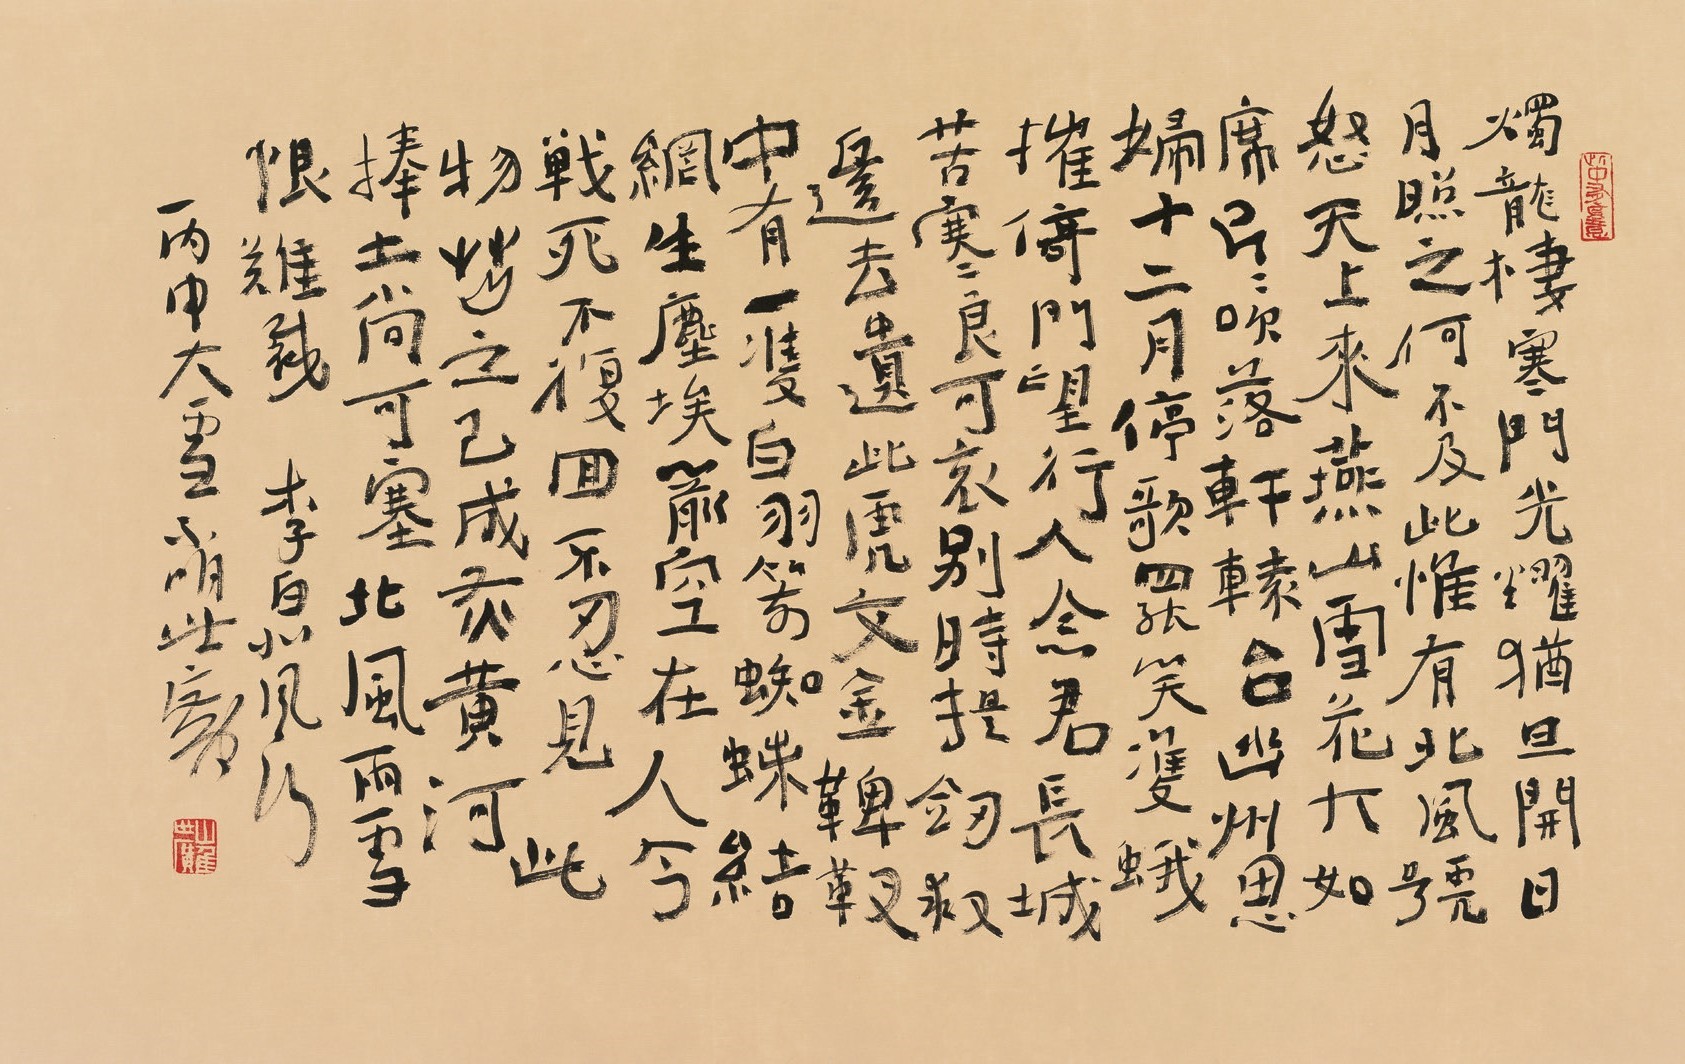 燭龍棲寒門光耀猶旦開日
月照之何不及此惟有北風號
怒天上來燕山雪花大如
席片〻吹落軒轅台幽州思
婦十二月停歌罷笑雙蛾
摧倚門望行人念君長城
苦寒良可哀別時提劒救
邊去遺此虎文金鞞靫
中有一雙白羽箭蜘蛛結
網生塵埃箭空在人今
戦死不復回不忍見此
物焚之已成灰黃河
捧土尚可塞北風雨雪
恨難裁 李白北風行
丙申大雪